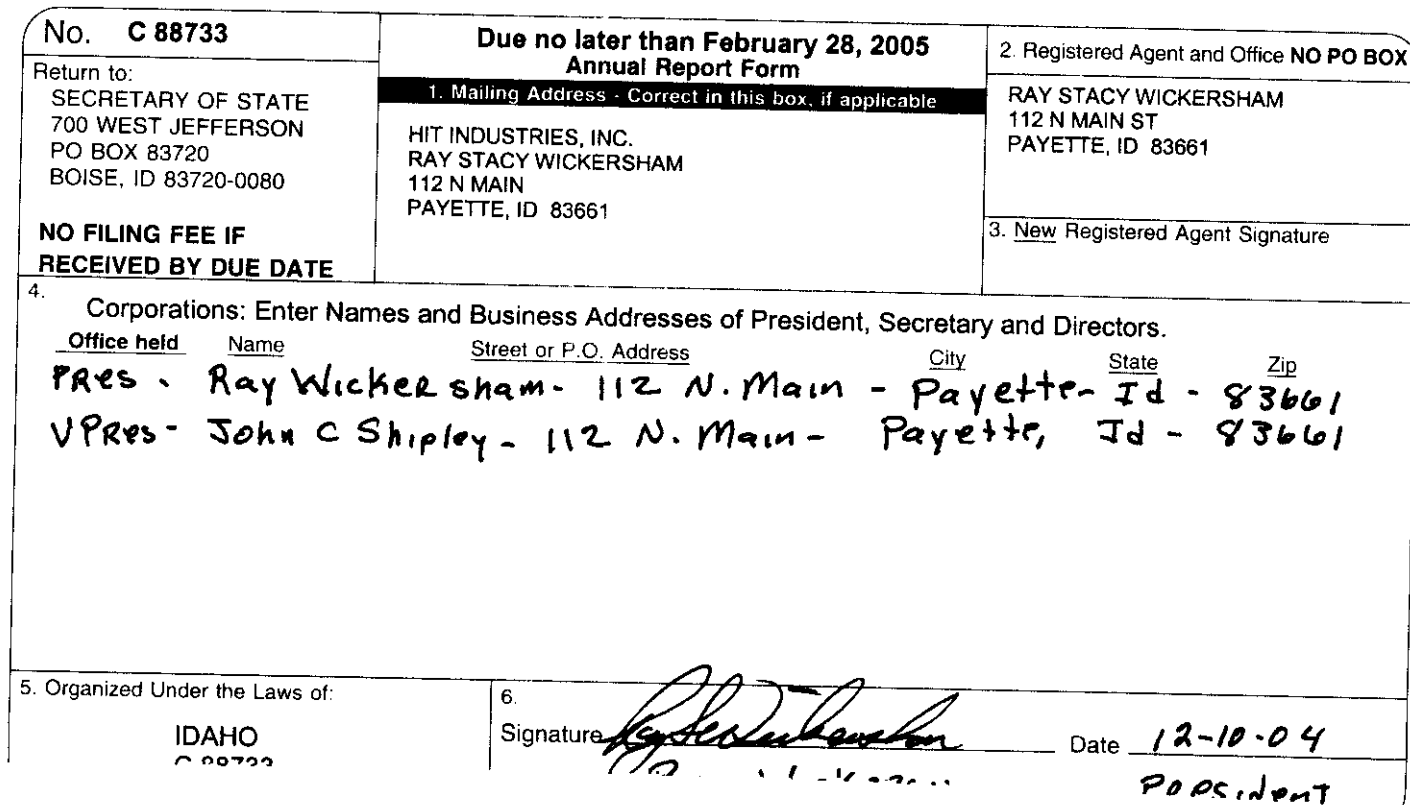 No. C 88733
Return to:
SECRETARY OF STATE
700 WEST JEFFERSON
PO BOX 83720
BOISE, ID 83720-0080
NO FILING FEE IF
RECEIVED BY DUE DATE
Due no later than February 28, 2005
Annual Report Form
1. Mailing Address - Correct in this box, if applicable
HIT INDUSTRIES, INC.
RAY STACY WICKERSHAM
112 N MAIN
PAYETTE, ID 83661
2. Registered Agent and Office NO PO BOX
RAY STACY WICKERSHAM
112 N MAIN ST
PAYETTE, ID 83661
3. New Registered Agent Signature
4.
Corporations: Enter Names and Business Addresses of President, Secretary and Directors.
Office held Name Street or P.O. Address City State Zip
PRes - Ray Wickersham - 112 N. Main - Payette - Id - 83661
VPRes - John C Shipley - 112 N. Main - Payette, Id - 83661
5. Organized Under the Laws of:
IDAHO
C 88733
6.
Signature Date 12-10-04